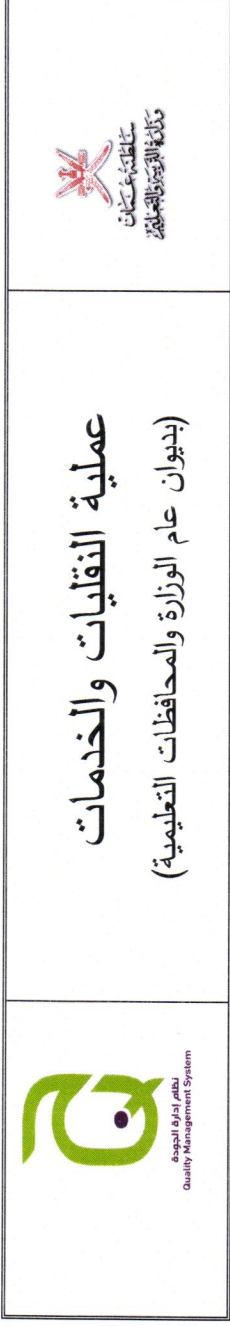 سلطنة عمان
وزارة التربية والتعليم
عملية النقليات والخدمات
(بديوان عام الوزارة والمحافظات التعليمية)
نظام إدارة الجودة
Quality Management System